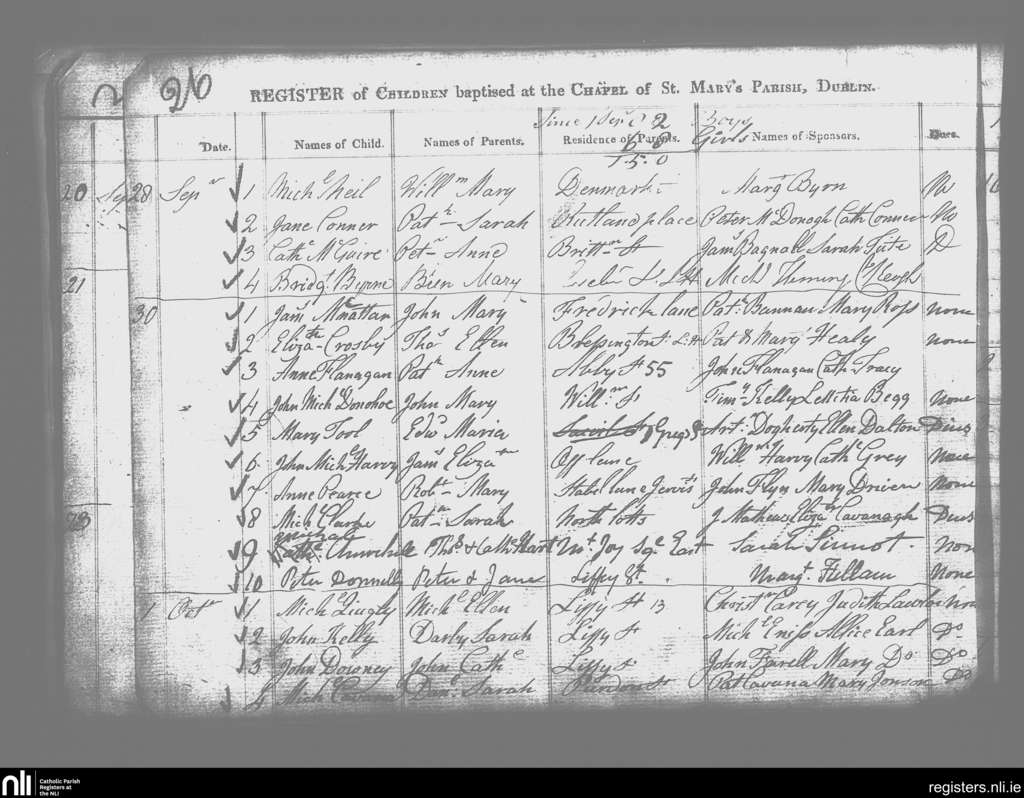 26
REGISTER of CHILDREN baptised at the CHAPEL of St. MARY's PARISH, DUBLIN.
Since 2 Boys
Girls
Date. Names of Child. Names of Parents. Residence of Parents. Names of Sponsors. Dues.
20 Sep 28 Sepr 1 Miche Neil Willm Mary Denmark Margt Byrn No
2 Jane Conner Patk Sarah Rutland place Peter McDonogh Cath Conner No
3 Cathe McGuire Petr Anne Brittn St Jams Bagnall Sarah D
21 4 Bridgt Byrne Bien Mary Michl Fleming Keogh
30 1 Jams John Mary Fredrick lane Patk Bannan Mary Ross none
2 Eliza Crosby Thos Ellen Bressington Pat & Margt Healy none
3 Anne Flanagan Patk Anne Abby St 55 John Flanagan Cath Tracy
4 John Miche Donohoe John Mary Willm St Timy Kelly Letitia Begg None
5 Mary Tool Edwd Maria Artr Dogherty Ellen Dalton Dius
6 John Miche Harvy Jams Eliza Off lane Willm Harvy Cathe Grey none
7 Anne Pearce Robt Mary Stable lane Jervis John Flyn Mary Driver None
23 8 Mich Clarke Patk Sarah North lotts J Mathews Eliza Cavanagh Dius
9 Cathe Thos & Cathe Hart Mt Joy Sqe East Sarah Sinnot. Non
10 Peter Donnelly Peter & Jane Liffy St. Margt Fullam None
1 Octr 1 Miche Miche Ellen Liffy St 13 Christr Carey Judith Lawlor Non
2 John Kelly Darby Sarah Liffy St Miche Eniss Allice Earl Do
3 John Downey John Cathe Liffy St John Farell Mary Do Do
4 Mich Danl Sarah Purdon St Pat Cavana Mary Jonson Do
nli
Catholic Parish
Registers at
the NLI
registers.nli.ie